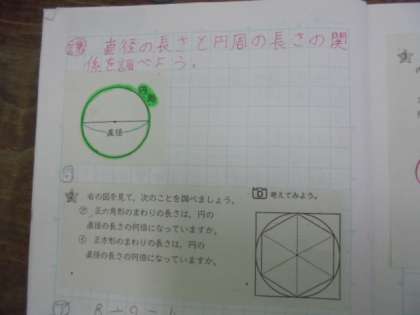 課 直径の長さと円周の長さの関
係を調べよう。
円周
直径
右の図を見て、次のことを調べましょう。
考えてみよう。
㋐ 正六角形のまわりの長さは、円の
直径の長さの何倍になっていますか。
㋑ 正方形のまわりの長さは、円の
直径の長さの何倍になっていますか。